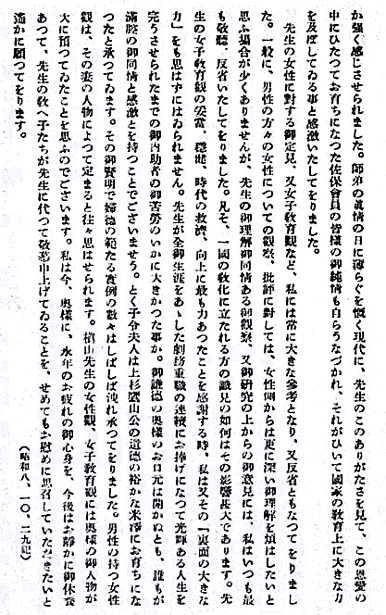 か强く感じさせられました。師弟の眞情の日に薄らぐを慨く現代に、先生のこのありがたさを見て、この恩愛の
中にひたつてお育ちになつた佐保會員の皆様の御純情も自らうなづかれ、それがひいて國家の教育上に大きな力
を及ぼしてゐる事と感激いたしてをりました。
先生の女性に對する御定見、又女子教育觀など、私には常に大きな參考となり、又反省ともなつてをりまし
た。一般に、男性の方々の女性についての觀察、批評に對しては、女性側からは更に深い御理解を煩はしたいと
思ふ場合が少くありませんが、先生の御理解御同情ある御觀察、又御研究の上からの御意見には、私はいつも最
も敬聽、反省いたしてをりました。凡そ、一國の敎化に立たれる方の識見の如何はその影響甚大であります。先
生の女子敎育觀の妥當、穩健、時代の救濟、向上に最も力あつたことを感謝する時、私は又その「裏面の大きな
力」をも思はずにはゐられません。先生が全御生涯をあゝした劇務重職の連續にお捧げになつて光輝ある人生を
完うさせられたまでの御內助者の御苦勞のいかに大きかつた事か。御謙德の奥様のお口元は開かぬとも、誰もが
滿腔の御同情と感激とを持つことでございませう。とく子令夫人は上杉鷹山公の道德の裕かな米澤にお育ちにな
つたと承つてゐます。その御賢明で婦德の範たる實例の數々はしばしば洩れ承つてをりました。男性の持つ女性
觀は、その妻の人物によつて定まると往々思はせられます。槇山先生の女性觀、女子敎育觀には奥様の御人物が
大に預つてゐたことを思ふのでございます。私は今、奥様に、永年のお疲れの御心身を、今後はお靜かに御休養
あつて、先生の敎へ子たちが先生に代つて敬慕申上げてゐることを、せめてもお慰めに思召していただきたいと
遙かに願つてをります。
(昭和八、一〇、二九記)